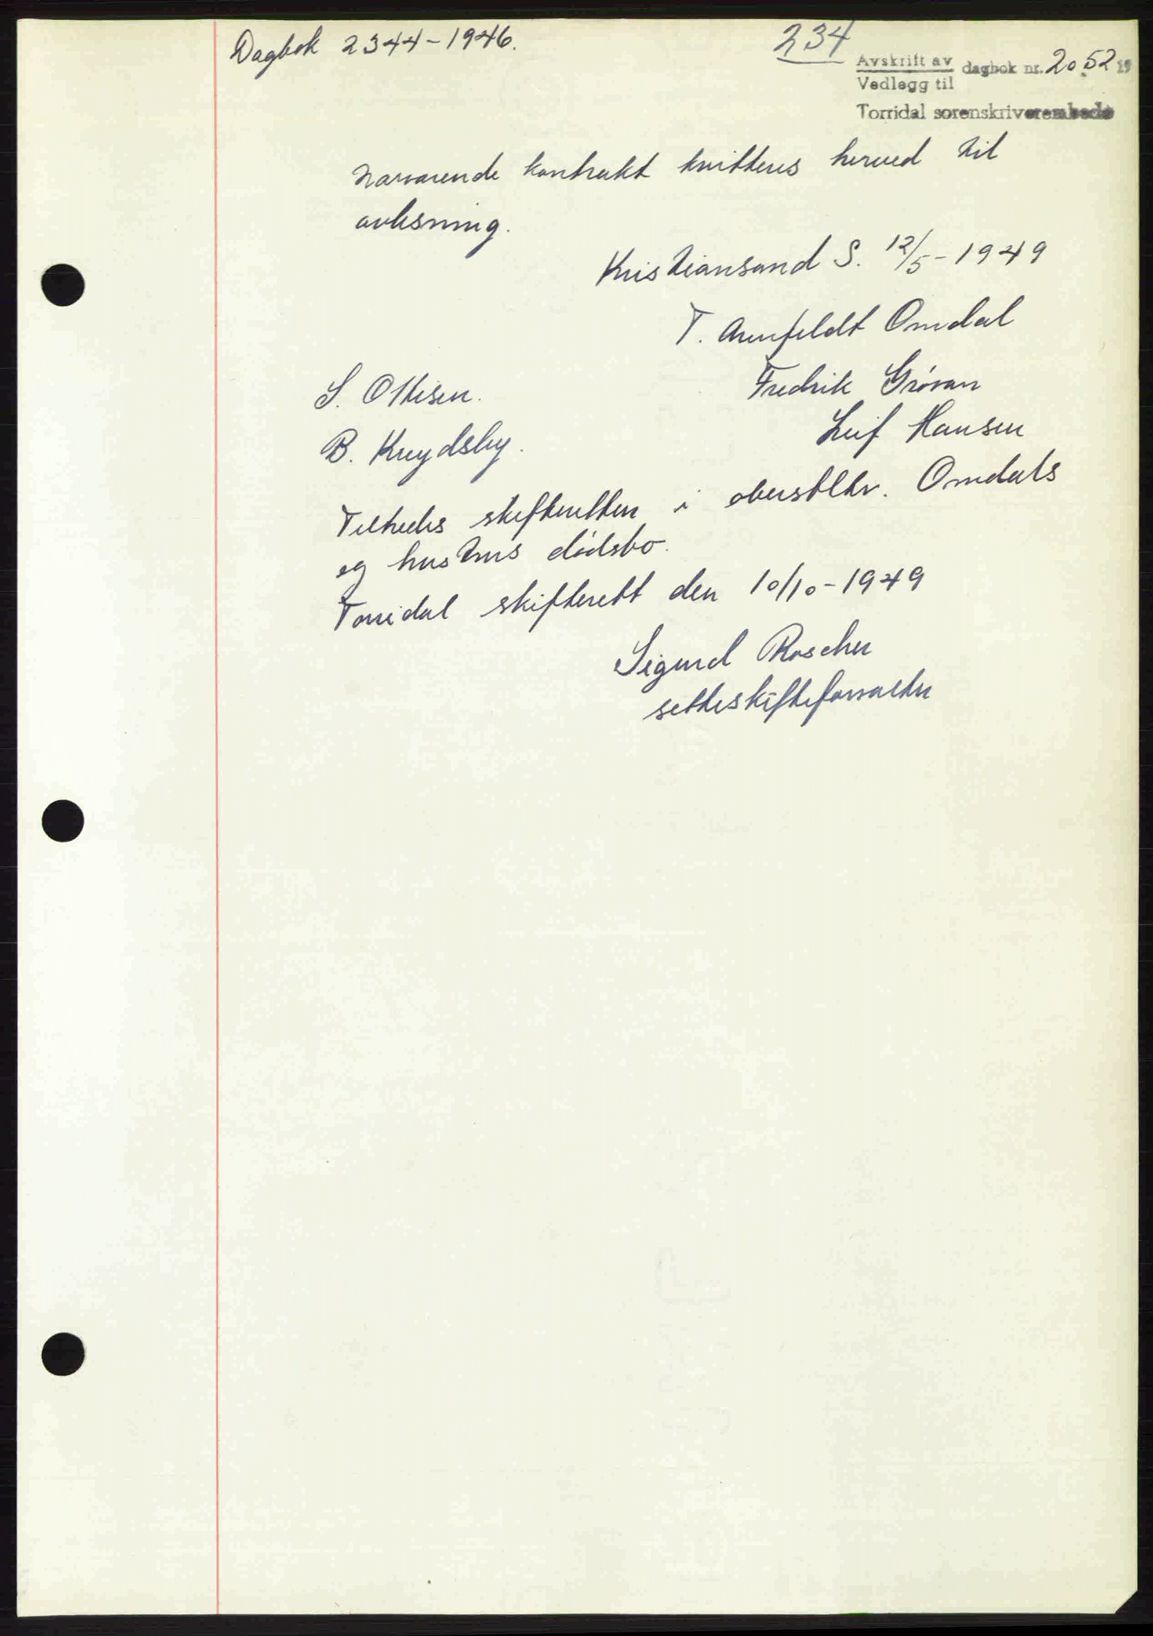 Dagbok 2344-1946.
234
Avskrift av dagbok nr. 2052 19
Vedlegg til
Torridal sorenskriverembede
Nærværende kontrakt kvitteres herved til
avlesning.
Kristiansand S. 12/5-1949
T. Arenfeldt Omdal
Fredrik Grövan
S. Ottesen.
Leif Hansen
B. Krydsby.
Tiltredes skifteretten i oberstltn. Omdals
og hustrus dödsbo.
Torridal skifterett den 10/10-1949
Sigurd Roscher
setteskifteforvalter